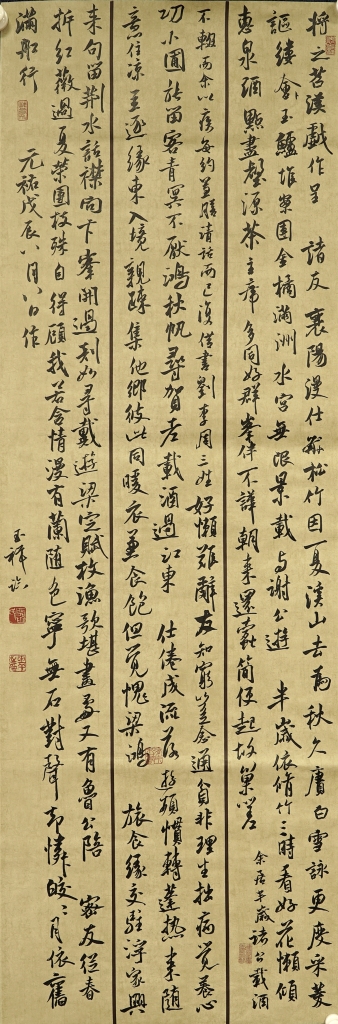 將之苕溪戲作呈 諸友 襄陽漫仕黻 松竹因夏溪山去為秋久賡白雪詠更度采菱
謳縷會玉鱸堆案團金橘滿洲水宮無限景載與謝公遊 半歲依脩竹三時看好花懶傾
惠泉酒點盡壑源茶主席多同好群峯伴不譁朝來還蠹簡便起故巢嗟 余居半歲諸公載酒
不輟而余以疾每約置膳清話而已復借書劉李周三姓 好懶難辭友知窮豈念通貧非理生拙病覺養心
功小圃能留客青冥不厭鴻秋帆尋賀老載酒過江東 仕倦成流落游頻慣轉蓬熱來隨
意住涼至逐緣東入境親疎集他鄉彼此同暖衣兼食飽但覺愧梁鴻 旅食緣交駐浮家興
來句留荊水話襟向卞峯開過剡如尋戴遊梁定賦枚漁歌堪畫處又有魯公陪 密友從春
拆紅薇過夏榮團枝殊自得顧我若含情漫有蘭隨色寧無石對聲却憐皎々月依舊
滿舡行
元祐戊辰八月八日作
玉祥臨